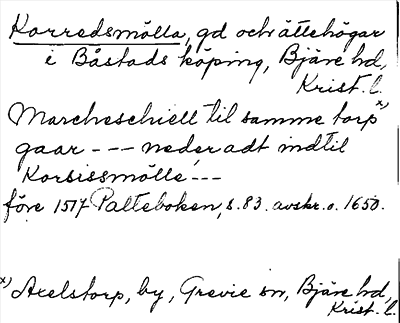 Korredsmölla, gd och ättehögar
i Båstads köping, Bjäre hd,
Krist. l.
Marcheschiell til samme torp x)
gaar --- neder adt indtil
Korsissmölle ---
före 1517 Palteboken, s. 83. avskr. o. 1650.
x) Axelstorp, by, Grevie sn, Bjäre hd,
Krist. l.